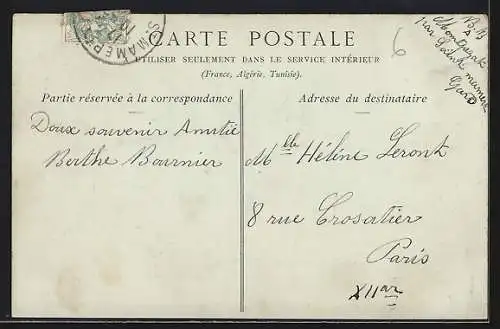 CARTE POSTALE
A UTILISER SEULEMENT DANS LE SERVICE INTÉRIEUR
(France, Algérie, Tunisie).
Partie réservée à la correspondance
Adresse du destinataire
Doux souvenir Amitié
Berthe Bournier
Mlle Héline Leront
8 rue Crosatier
Paris
XIIar
6
B. B
A
par Saint mamert
Gard